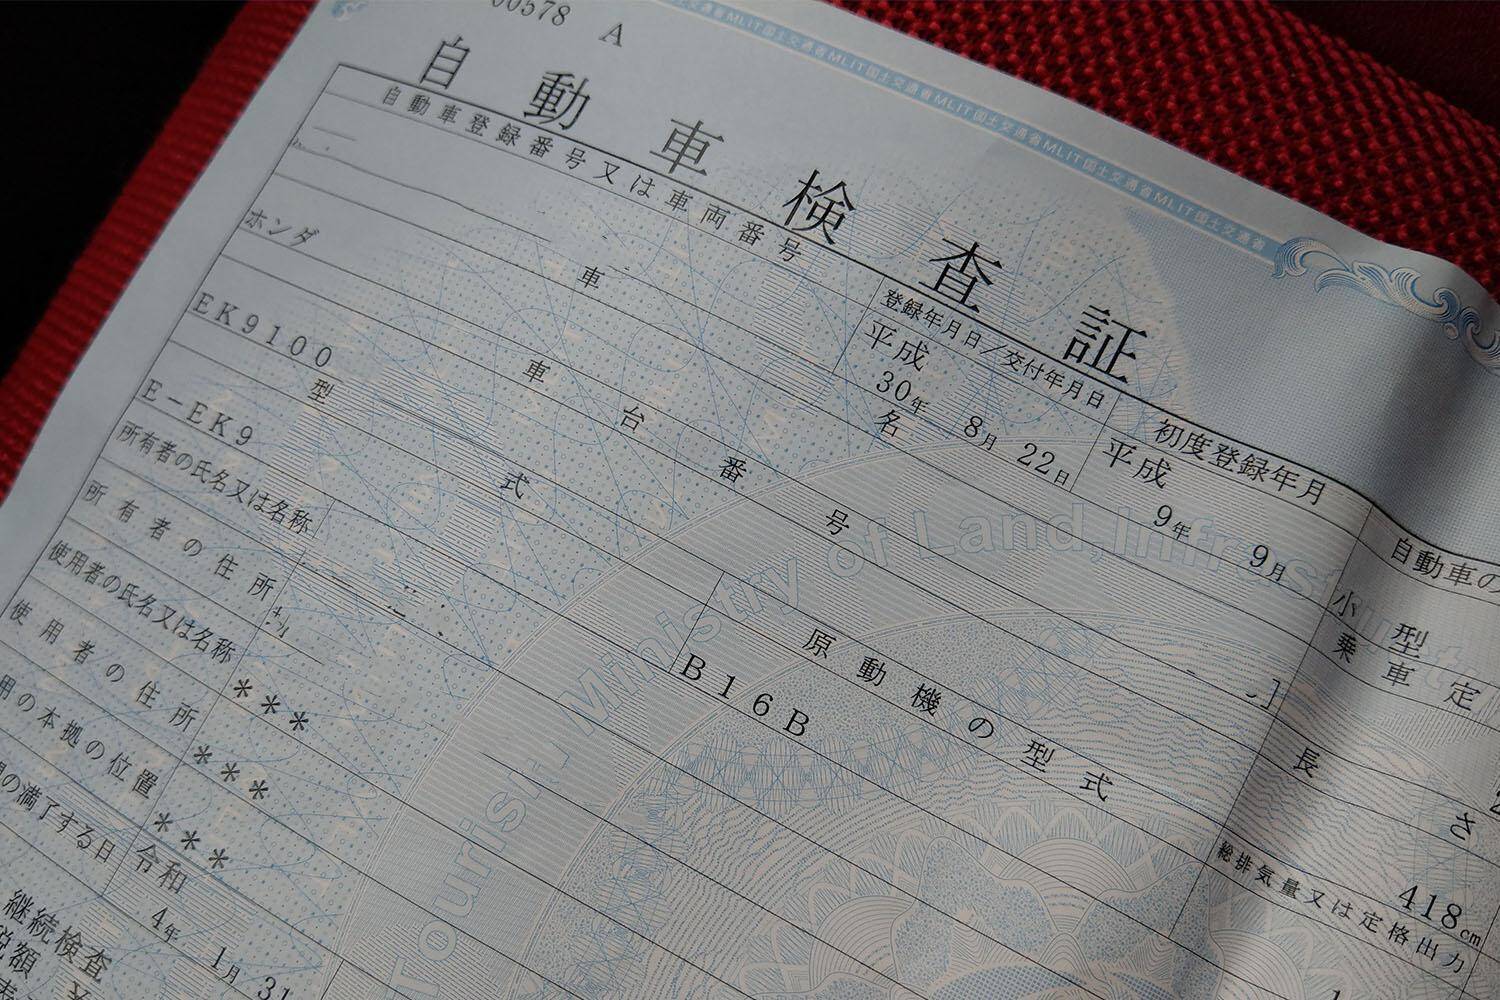 00578 A
自動車検査証
自動車登録番号又は車両番号
登録年月日／交付年月日
初度登録年月
自動車の
平成 30年 8月 22日
平成 9年 9月
小型
車名
乗車定
ホンダ
車台番号
長さ
EK9100
418cm
型式
原動機の型式
総排気量又は定格出力
E-EK9
B16B
所有者の氏名又は名称
所有者の住所
使用者の氏名又は名称
***
使用者の住所
***
用の本拠の位置
***
の満了する日
令和 4年 1月 31
継続検査
税額
MLIT国土交通省MLIT国土交通省MLIT国土交通省MLIT国土交通省MLIT国土交通省MLIT国土交通省
Ministry of Land,Infrast
Tourism